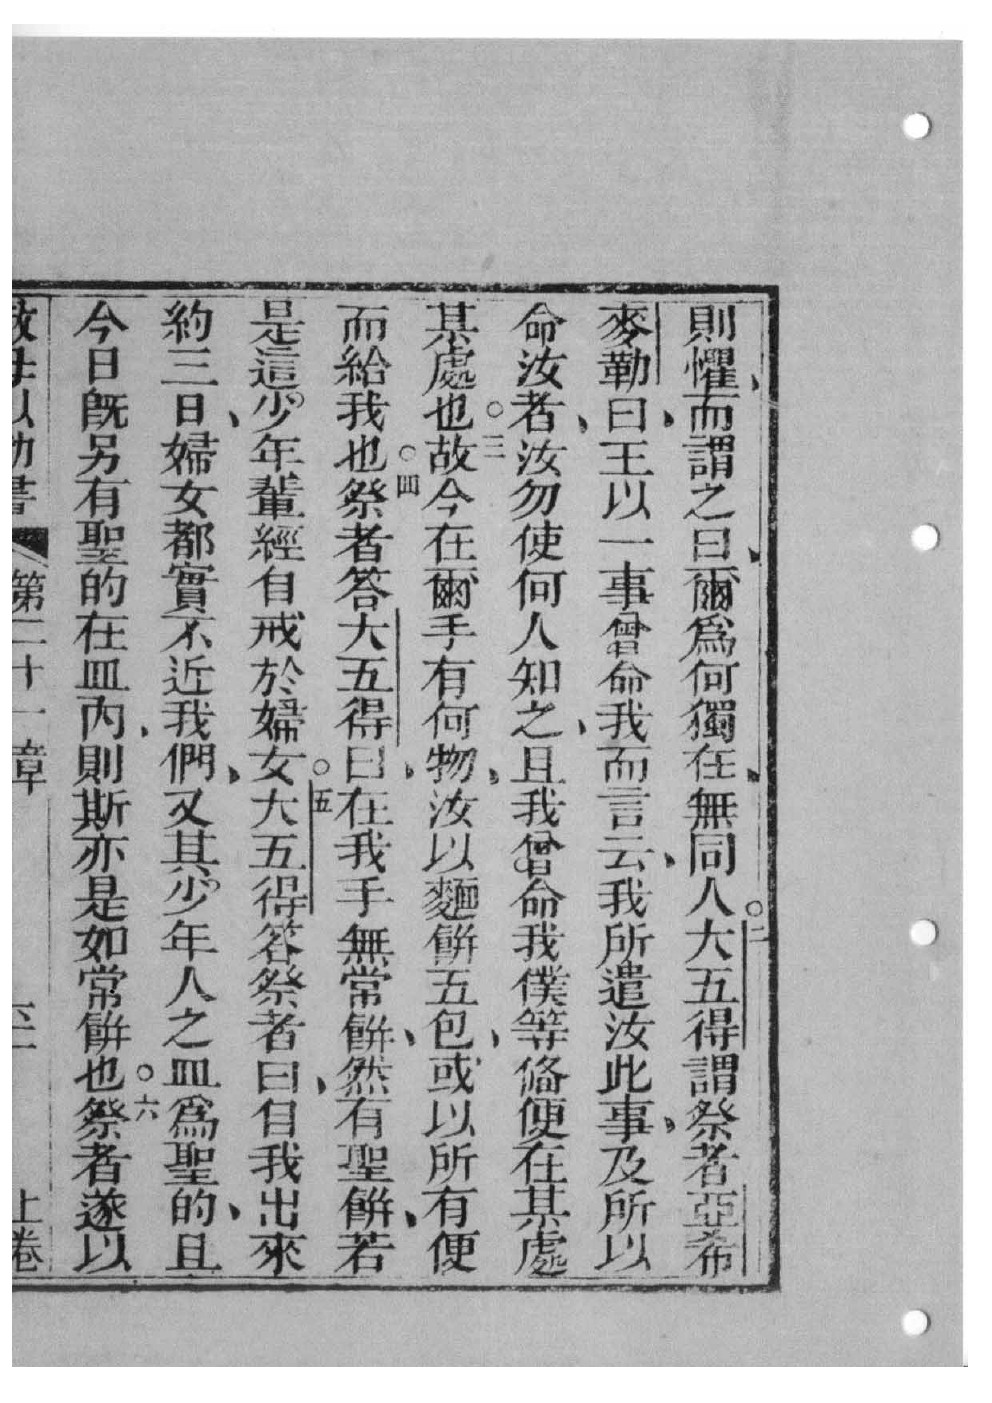 則懼、而謂之曰、爾爲何獨在、無同人。二大五得謂祭者亞希
麥勒曰、王以一事曾命我而言云、我所遣汝此事、及所以
命汝者、汝勿使何人知之、且我曾命我僕等俻便在某處
某處也。三故今在爾手有何物、汝以麵餅五包、或以所有便
而給我也。四祭者答大五得曰、在我手無常餅、然有聖餅、若
是這少年輩經自戒於婦女。五大五得答祭者曰、自我出來
約三日、婦女都實不近我們、又其少年人之皿爲聖的、且
今日旣另有聖的在皿內、則斯亦是如常餅也。六祭者遂以
第二十一章
上卷